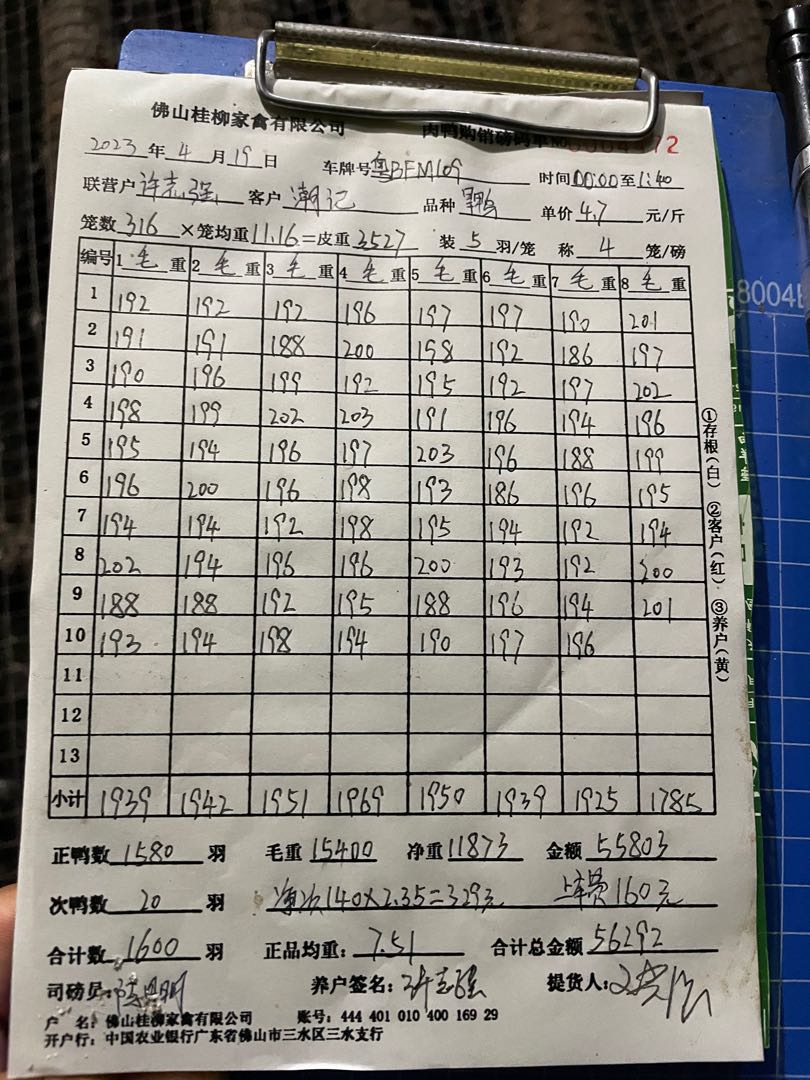 佛山桂柳家禽有限公司
肉鸭购销磅码单
2023 年 4 月 19 日 车牌号 粤BFM109 时间 00:00 至 1:40
联营户 许志强 客户 潮记 品种 单价 4.7 元/斤
笼数 316 ×笼均重 11.16 =皮重 3527 装 5 羽/笼 称 4 笼/磅
编号 1 毛 重 2 毛 重 3 毛 重 4 毛 重 5 毛 重 6 毛 重 7 毛 重 8 毛 重
1 192 192 192 196 197 197 190 201
2 191 191 188 200 198 192 186 197
3 190 196 199 192 195 192 197 202
4 198 199 202 203 191 196 194 196
5 195 194 196 197 203 196 188 199
6 196 200 196 198 193 186 196 195
7 194 194 192 198 195 194 192 194
8 202 194 196 196 200 193 192 200
9 188 188 192 195 188 196 194 201
10 193 194 198 194 190 197 196
11
12
13
小计 1939 1942 1951 1969 1950 1939 1925 1785
①存根(白) ②客户(红) ③养户(黄)
正鸭数 1580 羽 毛重 15400 净重 11873 金额 55803
次鸭数 20 羽 次140×2.35=329元 160元
合计数 1600 羽 正品均重: 7.51 合计总金额 56292
司磅员: 养户签名: 许志强 提货人:
户 名: 佛山桂柳家禽有限公司 账号: 444 401 010 400 169 29
开户行: 中国农业银行广东省佛山市三水区三水支行
8004